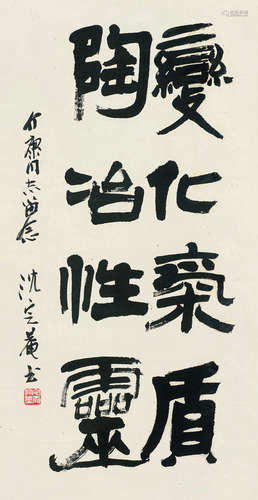 變化氣質
陶冶性靈
介康同志留念
沈定菴書